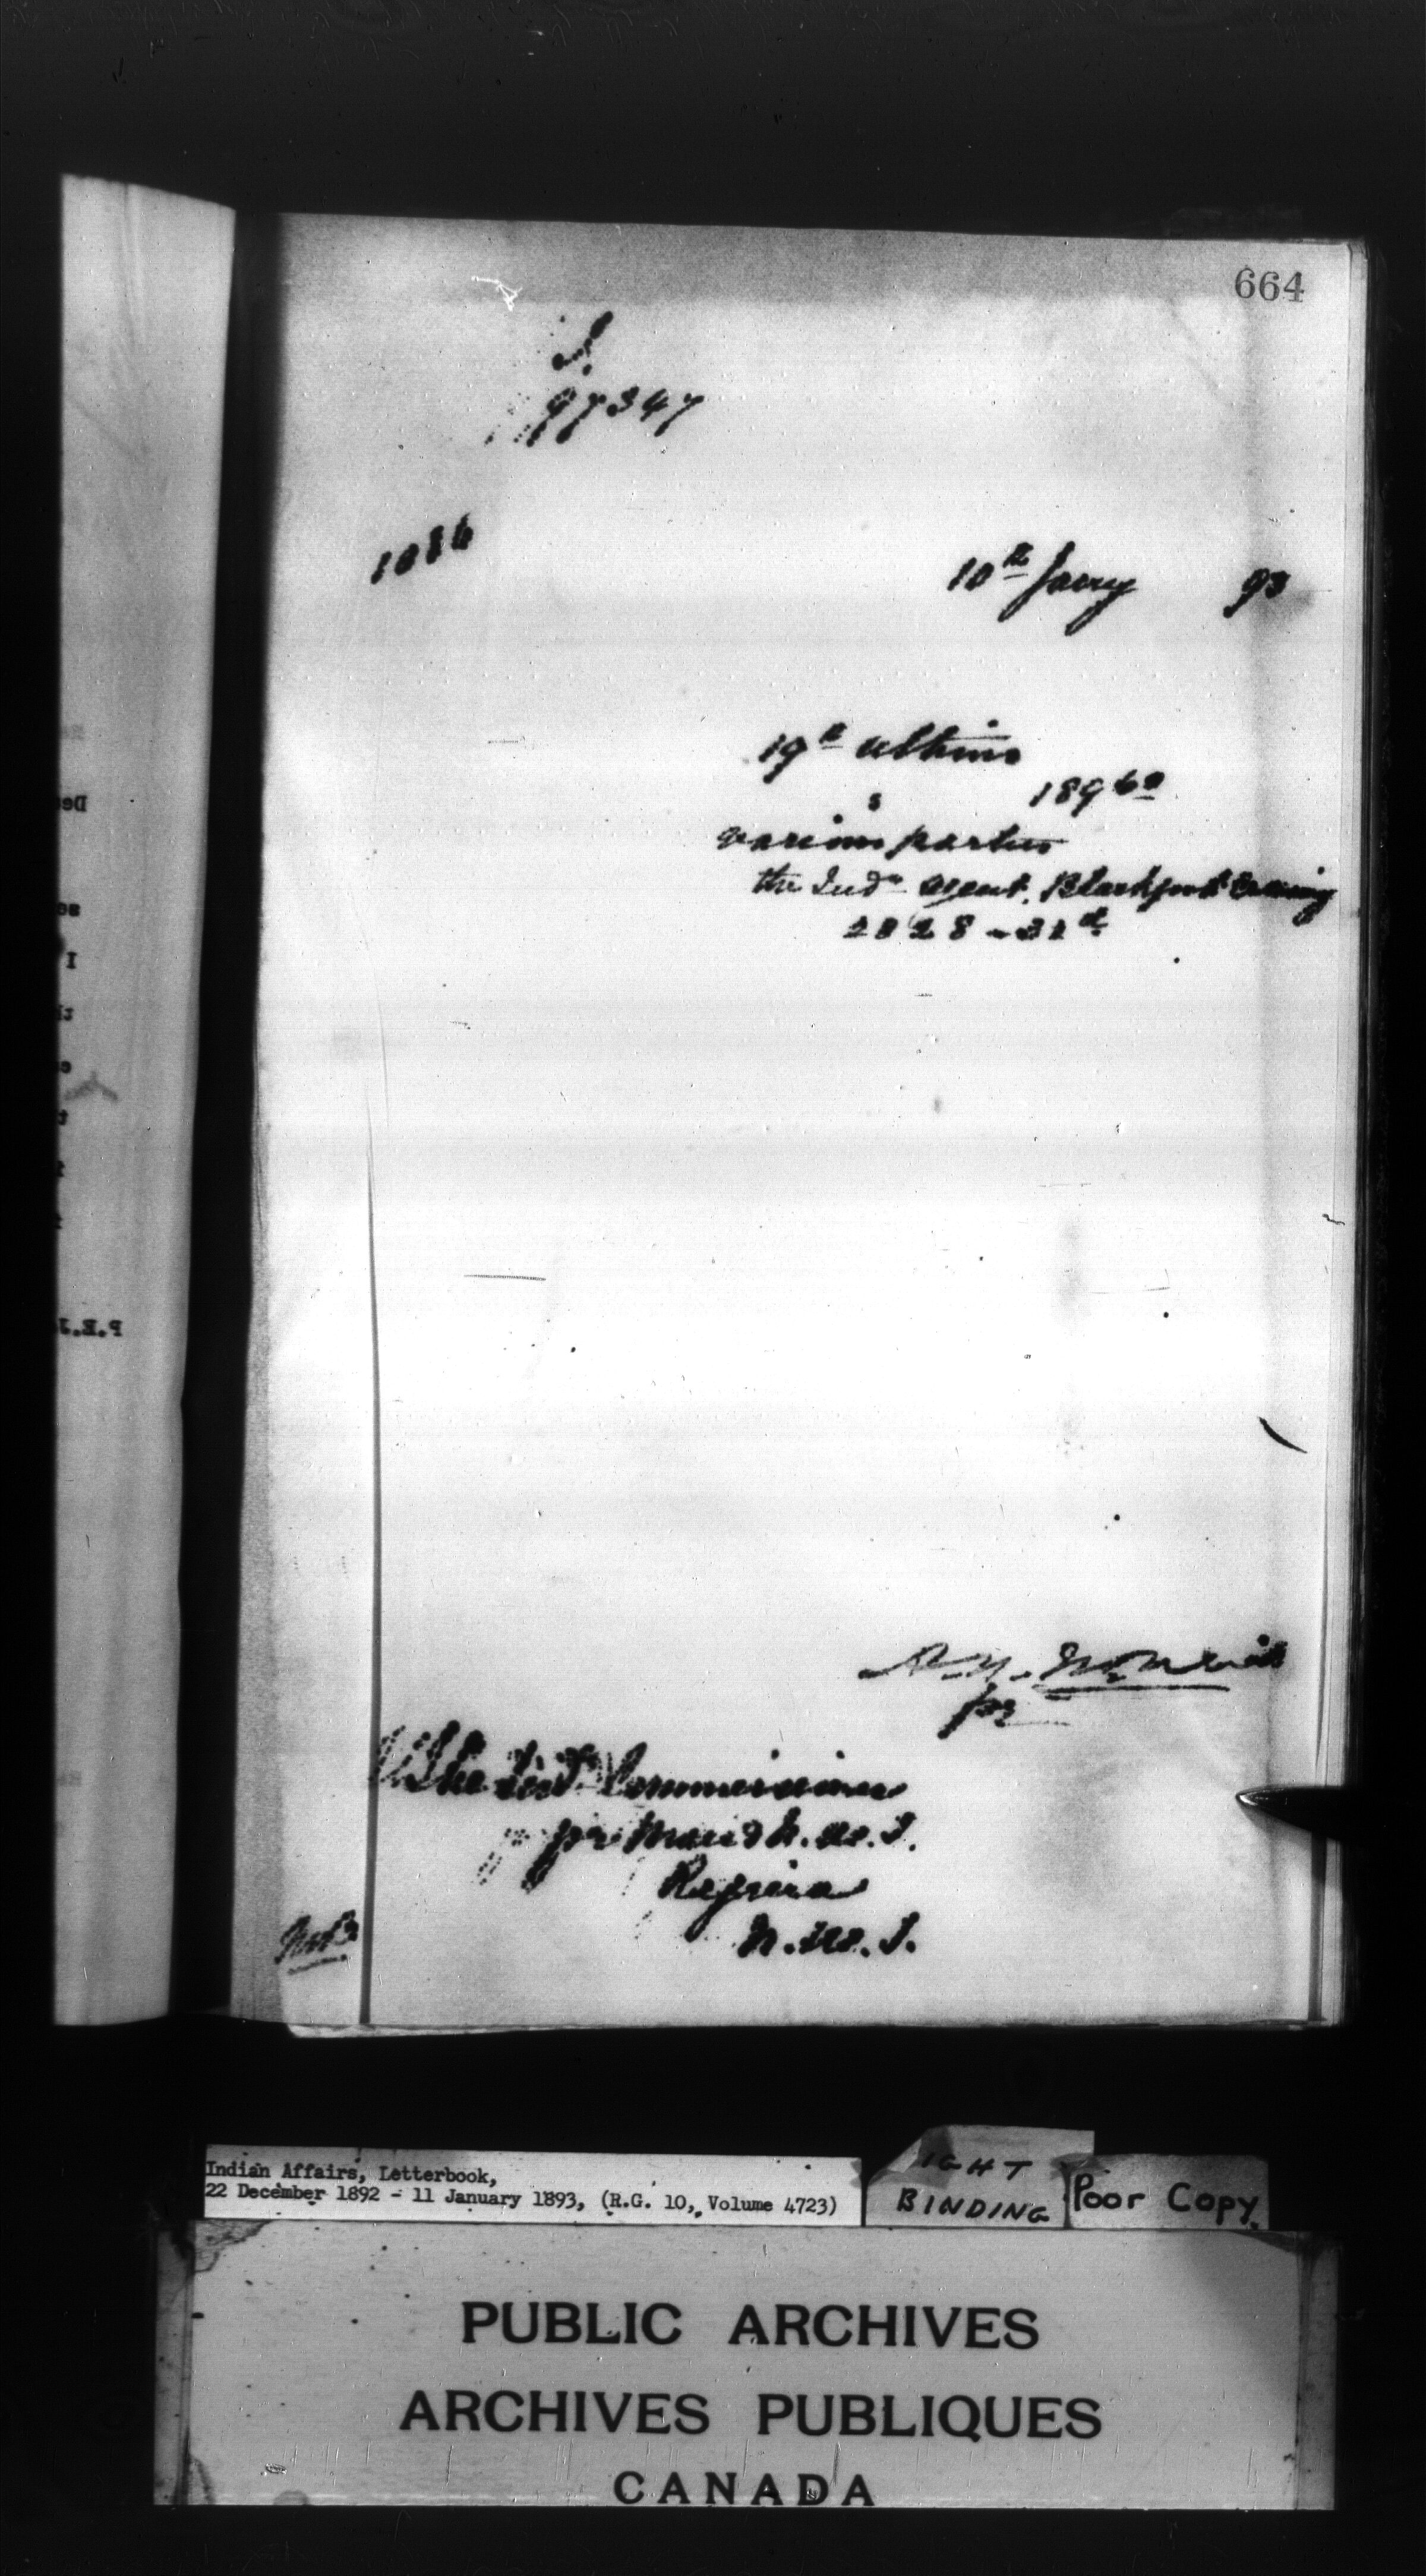 664
97347
10th Jany 93
19th ultimo
s 1896
various parties
the Indn Agent. Blackfoot Crossing
2028-31
for
The Indn Commissioner
for Man & N.W.T.
Regina
N.W.T.
P.E.J.
Indian Affairs, Letterbook,
22 December 1892 - 11 January 1893, (R.G. 10, Volume 4723)
IGHT
BINDING
Poor Copy
PUBLIC ARCHIVES
ARCHIVES PUBLIQUES
CANADA